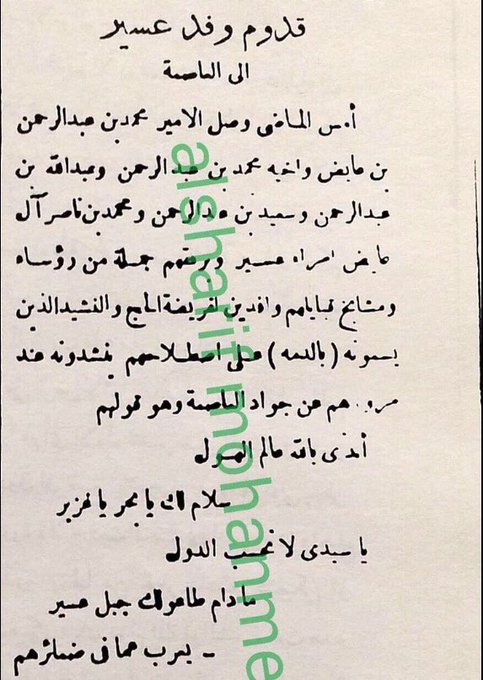 قدوم وفد عسير
الى العاصمة
أمس الماضى وصل الامير محمد بن عبدالرحمن
بن عايض واخيه محمد بن عبد الرحمن وعبدالله بن
عبدالرحمن وسعيد بن عبدالرحمن ومحمد بن ناصر آل
عايض امراء عسير وبرفقتهم جملة من رؤساء
ومشايخ قبايلهم وافدين لفريضة الحج والنشيد الذين
يسمونه ( بالدمه ) على اصطلاحهم ينشدونه عند
مرورهم من جواد العاصمة وهو قولهم
أبدى بالله عالم
سلام لك يا بحر يا غزير
يا سيدى لا تحسب الدول
مادام طاعولك جبل عسير
- يعرب عما فى ضمائرهم
alsharif mohamme